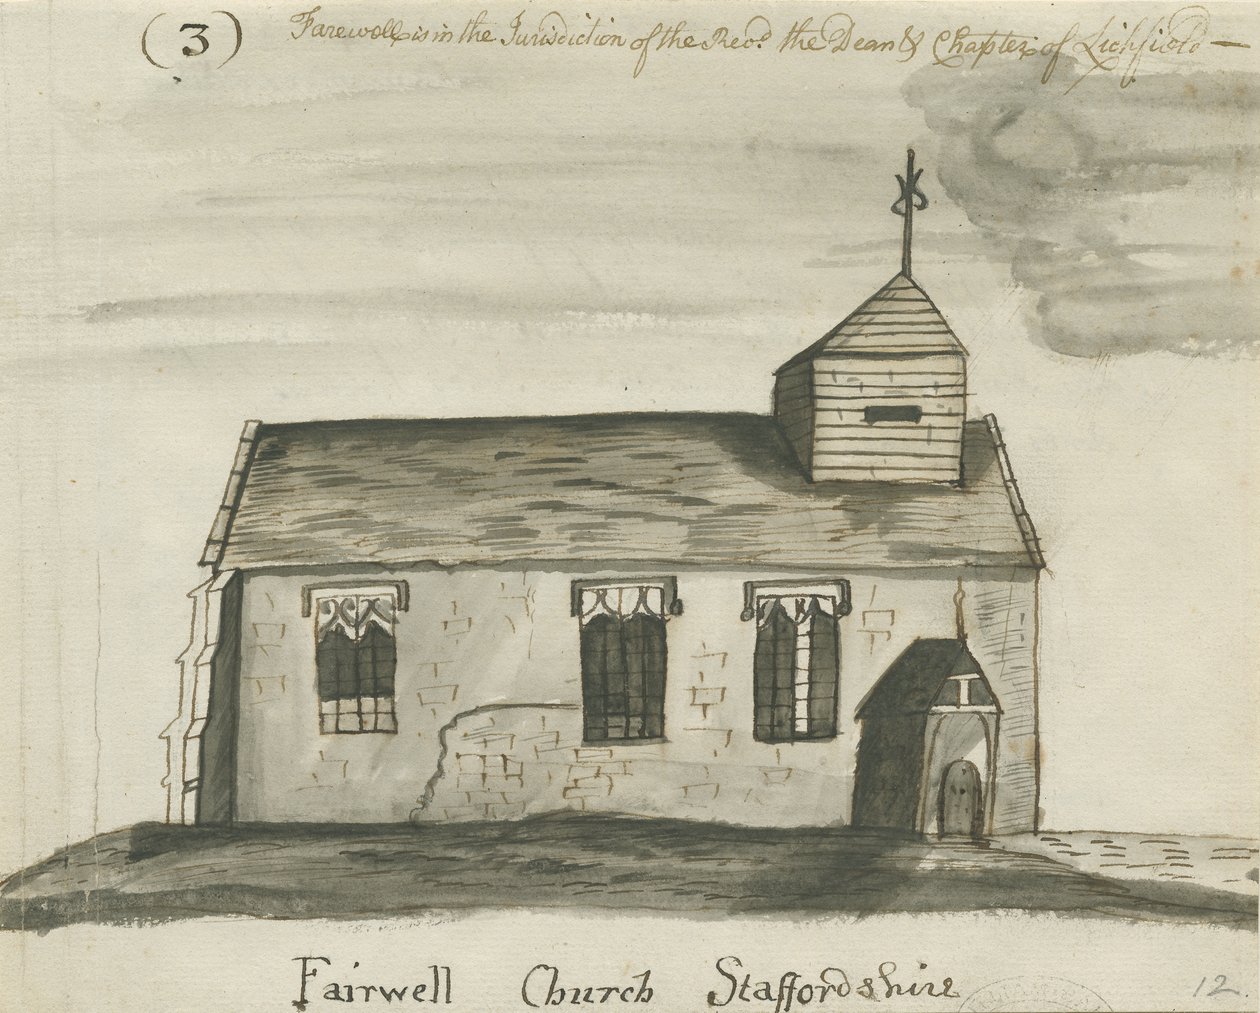 (3)
Farewell is in the Jurisdiction of the Revd. the Dean & Chapter of Lichfield —
Fairwell Church Staffordshire
12.